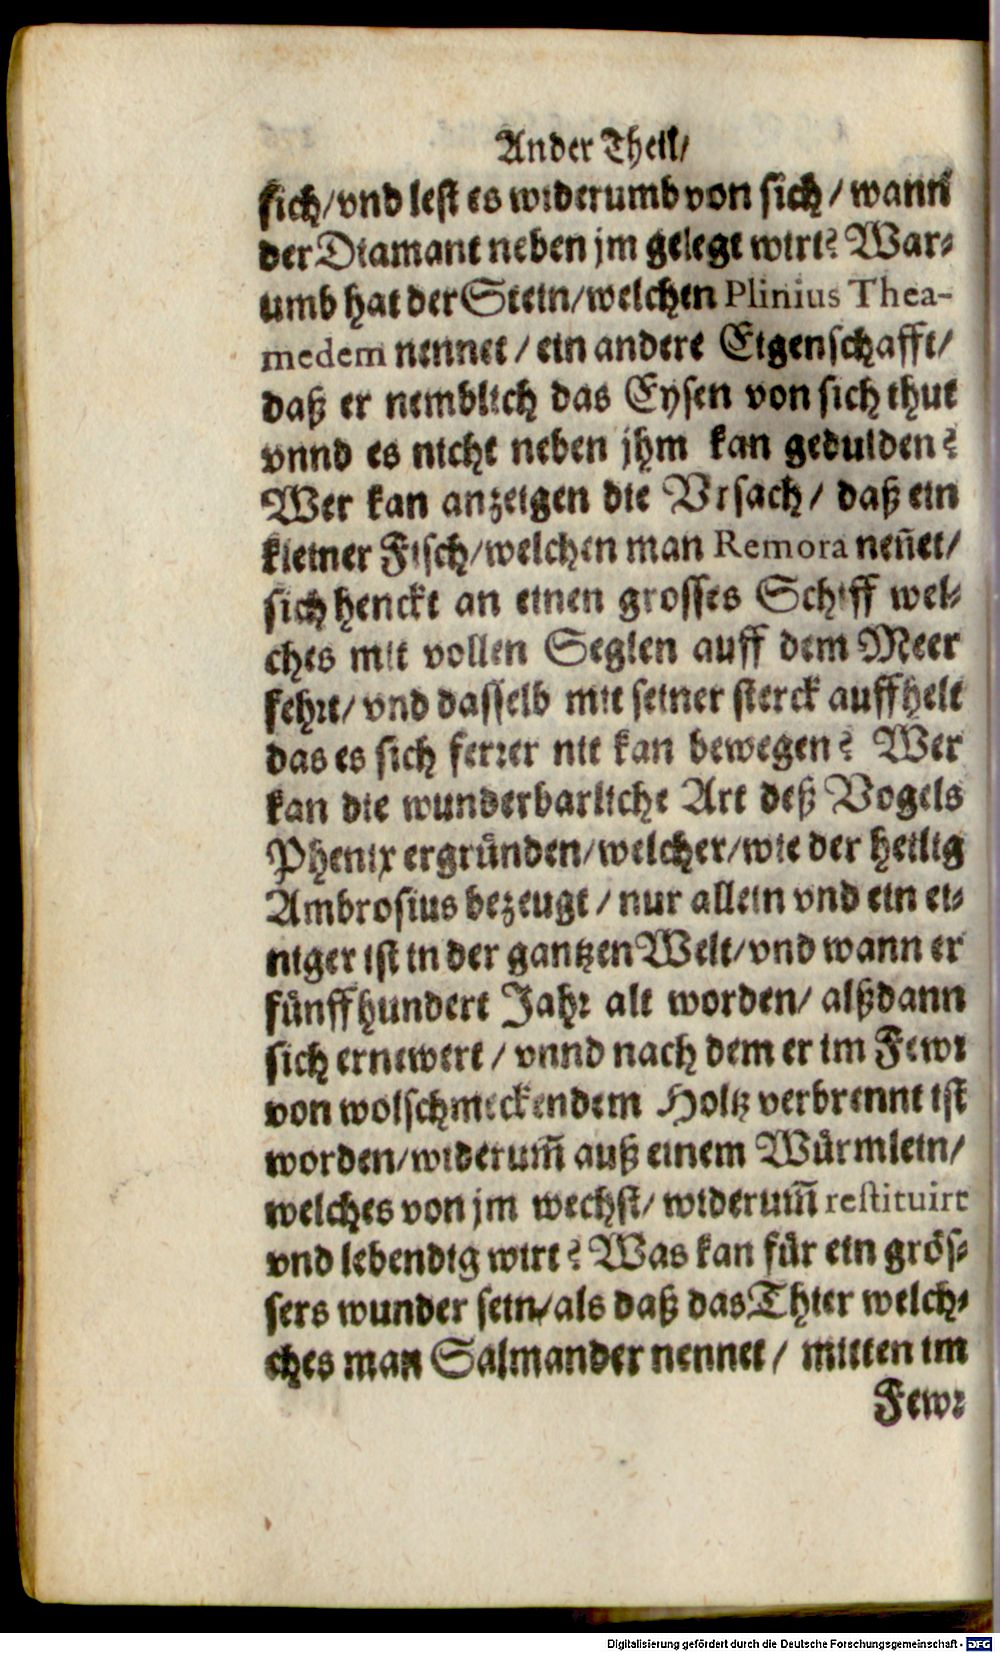 Ander Theil/
sich/vnd lest es widerumb von sich / wann
der Diamant neben jm gelegt wirt? War-
umb hat der Stein/welchen Plinius Thea-
medem nennet / ein andere Eigenschafft/
daß er nemblich das Eysen von sich thut
vnnd es nicht neben jhm kan gedulden?
Wer kan anzeigen die Vrsach / daß ein
kleiner Fisch/welchen man Remora neñet/
sich henckt an einen grosses Schiff wel-
ches mit vollen Seglen auff dem Meer
fehrt/ vnd dasselb mit seiner sterck auffhelt
das es sich ferrer nit kan bewegen? Wer
kan die wunderbarliche Art deß Vogels
Phenix ergründen/welcher/wie der heilig
Ambrosius bezeugt / nur allein vnd ein ei-
niger ist in der gantzen Welt/vnd wann er
fünffhundert Jahr alt worden/ alßdann
sich ernewert / vnnd nach dem er im Fewr
von wolschmeckendem Holtz verbrennt ist
worden/widerum̃ auß einem Würmlein/
welches von jm wechst/ widerum̃ restituirt
vnd lebendig wirt? Was kan für ein grös-
sers wunder sein/als daß das Thier welch-
ches man Salmander nennet / mitten im
Fewr
Digitalisierung gefördert durch die Deutsche Forschungsgemeinschaft - DFG